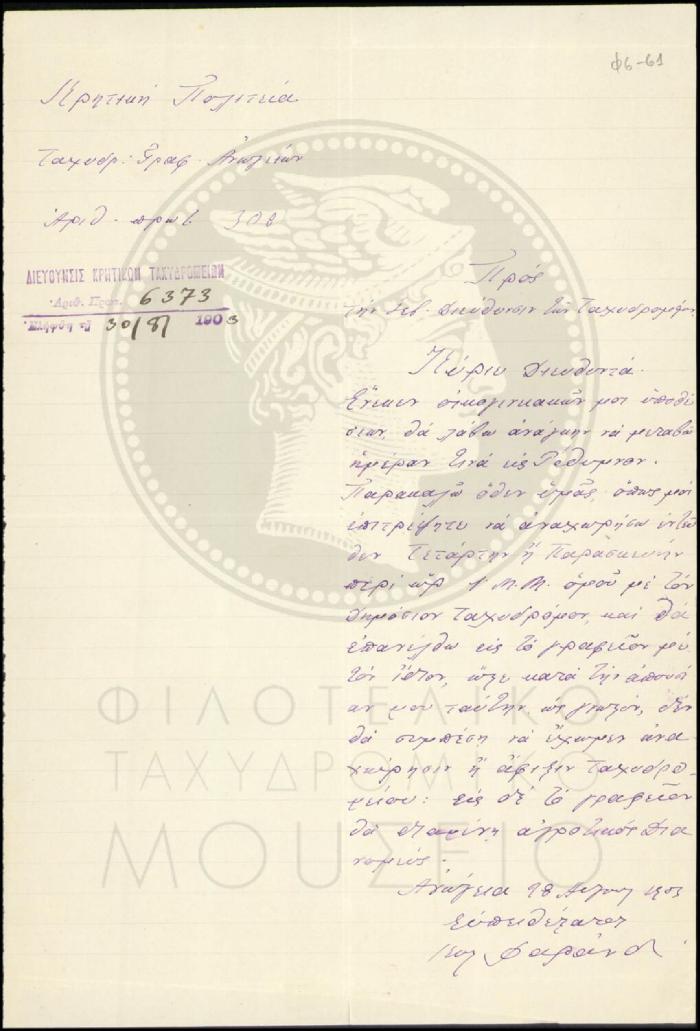 Φ6-61
Κρητική Πολιτεία
Ταχυδρ: Γραφ. Ανωγείων
Αριθ. πρωτ. 308
ΔΙΕΥΘΥΝΣΙΣ ΚΡΗΤΙΚΩΝ ΤΑΧΥΔΡΟΜΕΙΩΝ
Αριθ. Πρωτ. 6373
30/8/ 1903
Πρός
την Σεβ. Διεύθυνσιν των Ταχυδρομείων
Κύριε Διευθυντά.
Ένεκεν οικογενειακών μου υποθέ
σεων, θα λάβω ανάγκην να μεταβώ
ημέραν τινά εις Ρέθυμνον.
Παρακαλώ όθεν υμάς, όπως μοί
επιτρέψητε να αναχωρήσω εντεύ
θεν Τετάρτην ή Παρασκευήν
περί ώρ. 1 Μ.Μ. ομού με τον
δημόσιον ταχυδρόμον, και θα
επανέλθω εις το γραφείον μου
κατά την απουσί
αν μου ταύτην, ως γνωστόν, δεν
θα συμπέση να έχωμεν ανα
χώρησιν ή άφιξιν ταχυδρο
μείου: εις δε το γραφείον
θα διαμένη αγροτικός δια
νομεύς.
Ανώγεια 28 Αυγού 1903
Ευπειθέστατος
ΦΙΛΟΤΕΛΙΚΟ
ΤΑΧΥΔΡΟΜΙΚΟ
ΜΟΥΣΕΙΟ